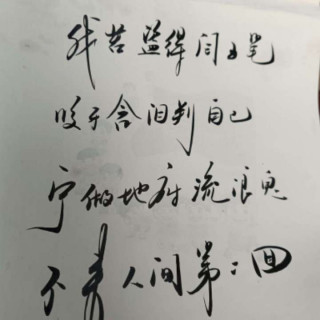 我若盗得闫王笔
咬牙含泪判自己
宁做地府流浪鬼
不来人间第二回